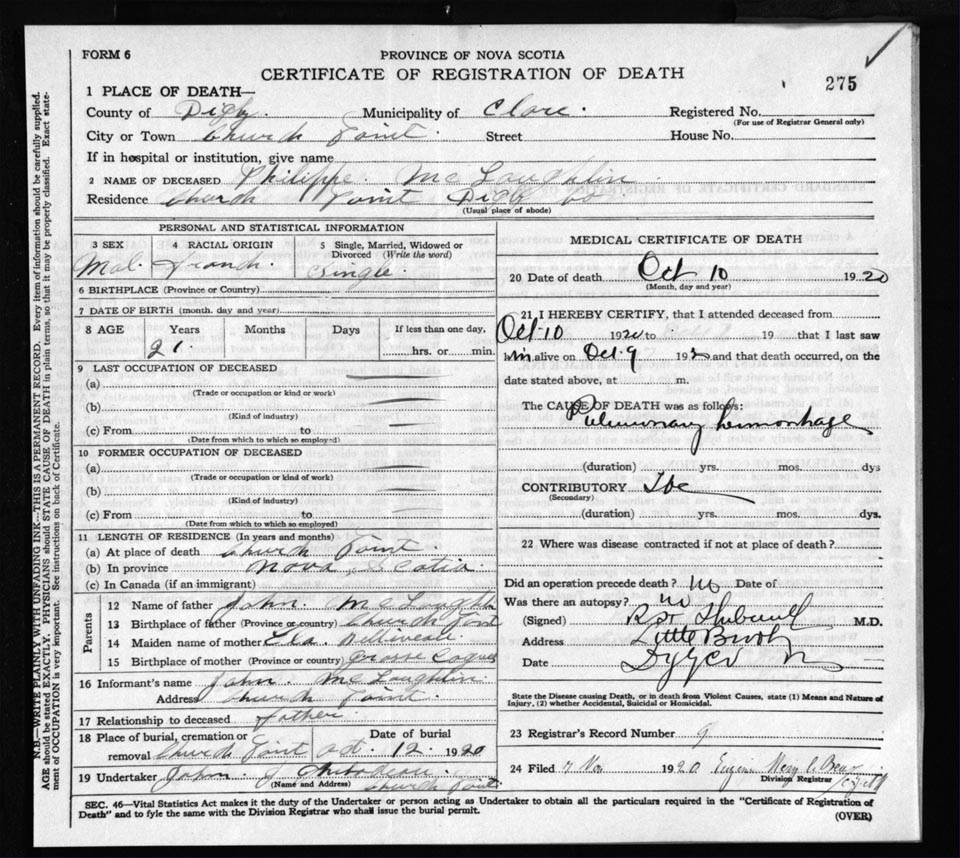 FORM 6
PROVINCE OF NOVA SCOTIA
CERTIFICATE OF REGISTRATION OF DEATH
275
1 PLACE OF DEATH—
County of Digby. Municipality of Clare. Registered No.
(For use of Registrar General only)
City or Town Church Point. Street House No.
If in hospital or institution, give name
2 NAME OF DECEASED Philippe. McLaughlin.
Residence Church Point Digby Co.
(Usual place of abode)
PERSONAL AND STATISTICAL INFORMATION
3 SEX 4 RACIAL ORIGIN 5 Single, Married, Widowed or Divorced (Write the word)
Mal. French. Single.
6 BIRTHPLACE (Province or Country)
7 DATE OF BIRTH (month. day and year)
8 AGE Years Months Days If less than one day,
21. hrs. or min.
9 LAST OCCUPATION OF DECEASED
(a)
(Trade or occupation or kind or work)
(b)
(Kind of industry)
(c) From to
(Date from which to which so employed)
10 FORMER OCCUPATION OF DECEASED
(a)
(Trade or occupation or kind of work)
(b)
(Kind of industry)
(c) From to
(Date from which to which so employed)
11 LENGTH OF RESIDENCE (In years and months)
(a) At place of death Church Point.
(b) In province Nova Scotia.
(c) In Canada (if an immigrant)
Parents
12 Name of father John. McLaughlin
13 Birthplace of father (Province or country) Church Point
14 Maiden name of mother Belliveau.
15 Birthplace of mother (Province or country) Grosse Coques
16 Informant's name John. McLaughlin.
Address Church Point.
17 Relationship to deceased father.
18 Place of burial, cremation or removal Church Point Date of burial Oct. 12. 1920
19 Undertaker John. J
(Name and Address) Church Point.
MEDICAL CERTIFICATE OF DEATH
20 Date of death Oct 10 1920
(Month, day and year)
21 I HEREBY CERTIFY, that I attended deceased from
Oct. 10 1920 to 19 that I last saw
him alive on Oct. 9 1920 and that death occurred, on the
date stated above, at m.
The CAUSE OF DEATH was as follows:
Pulmonary hemorrhage
(duration) yrs. mos. dys
CONTRIBUTORY Tbc
(Secondary)
(duration) yrs. mos. dys.
22 Where was disease contracted if not at place of death?
Did an operation precede death? no Date of
Was there an autopsy? no
(Signed) Thibault M.D.
Address Little Brook
Date Digby Co
State the Disease causing Death, or in death from Violent Causes, state (1) Means and Nature of
Injury, (2) whether Accidental, Suicidal or Homicidal.
23 Registrar's Record Number 9
24 Filed 7 Nov 1920.
Division Registrar
SEC. 46—Vital Statistics Act makes it the duty of the Undertaker or person acting as Undertaker to obtain all the particulars required in the "Certificate of Registration of
Death" and to fyle the same with the Division Registrar who shall issue the burial permit.
(OVER)
N.B.—WRITE PLAINLY WITH UNFADING INK—THIS IS A PERMANENT RECORD. Every item of information should be carefully supplied.
AGE should be stated EXACTLY. PHYSICIANS should STATE CAUSE OF DEATH in plain terms, so that it may be properly classified. Exact state-
ment of OCCUPATION is very important. See instructions on back of Certificate.